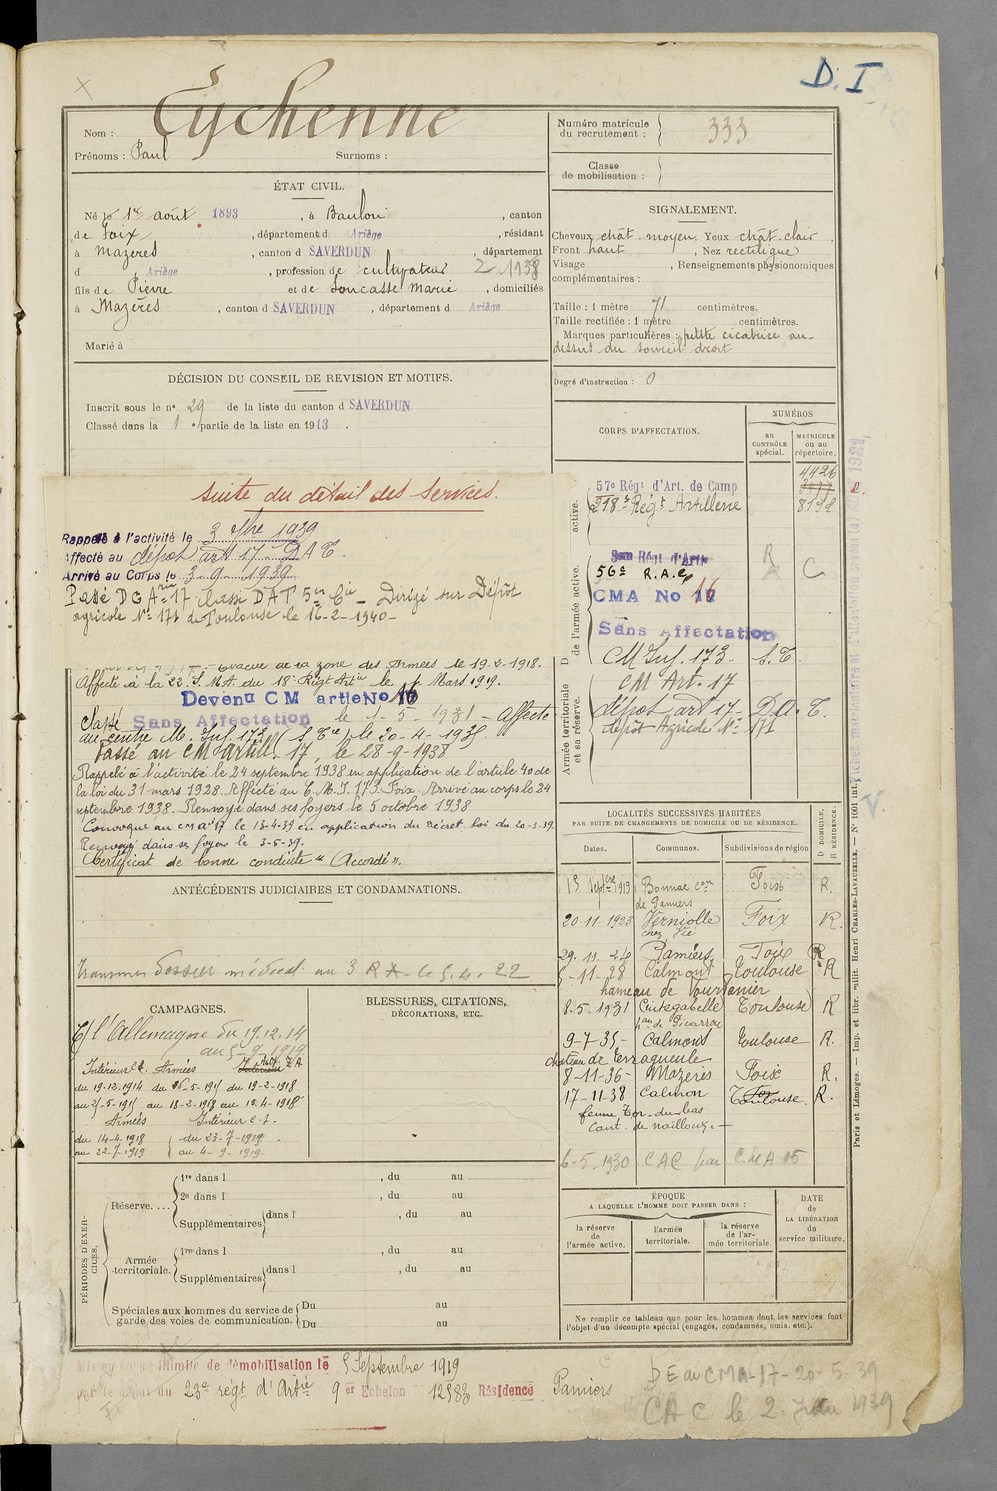 D. I
Eychenne
Nom :
Prénoms : Paul Surnoms :
Numéro matricule du recrutement : 333
Classe de mobilisation :
ÉTAT CIVIL.
Né le 1er août 1893, à Baulou, canton
de Foix, département d Ariège, résidant
à Mazères, canton d SAVERDUN, département
d Ariège, profession de cultivateur
fils de Pierre et de Loucasse Marie, domiciliés
à Mazères, canton d SAVERDUN, département d Ariège
Marié à
SIGNALEMENT.
Cheveux chât. moyen, Yeux chât-clair,
Front haut, Nez rectiligne
Visage, Renseignements physionomiques
complémentaires :
Taille : 1 mètre 71 centimètres.
Taille rectifiée : 1 mètre centimètres.
Marques particulières : petite cicatrice au-
dessus du sourcil droit
Degré d'instruction : 0
DÉCISION DU CONSEIL DE REVISION ET MOTIFS.
Inscrit sous le n° 29 de la liste du canton d SAVERDUN
Classé dans la 1e partie de la liste en 1913.
Suite du détail des Services.
Rappelé à l'activité le 3 7bre 1939
Affecté au dépôt art 17 D A T.
Arrivé au Corps le 3.9.1939
Passé D G Arie 17 classé D A T 5e Cie _ Dirigé sur Dépôt
agricole No 171 de Toulouse le 16-2-1940-
Evacué de la zone des Armées le 19-2-1918.
Affecté à la 22e S.M.A. du 18e Régt Artie le Mars 1919.
Devenu CM artie No 16
Sans Affectation
Passé le 1-5-1931 - Affecté
au centre M. Inf. 173 (S. Tre) le 20-4-1935.
Passé au CM Artill. 17, le 28-9-1938
Rappelé à l'activité le 24 septembre 1938 en application de l'article 40 de
la loi du 31 mars 1928. Affecté au C.M.I. 173 Foix. Arrivé au corps le 24
septembre 1938. Renvoyé dans ses foyers le 5 octobre 1938
Convoqué au CM A 17 le 13-4-39 en application du décret loi du 20-3-39.
Renvoyé dans ses foyers le 3-5-39.
Certificat de bonne conduite "Accordé".
CORPS D'AFFECTATION.
NUMÉROS
au CONTRÔLE spécial.
MATRICULE ou au répertoire.
57e Régt d'Art. de Camp 4426
218e Régt Artillerie 8192
56e R.A.C. C
CMA No 16
Sans Affectation
CM Inf. 173. S.T.
CM Art. 17
dépôt art 17 - D.A.T.
dépôt Agricole No 171
active.
de l'armée active.
Armée territoriale et sa réserve.
ANTÉCÉDENTS JUDICIAIRES ET CONDAMNATIONS.
Transmis dossier médical au 3 R A - le 5.4.22
LOCALITÉS SUCCESSIVES HABITÉES
PAR SUITE DE CHANGEMENTS DE DOMICILE OU DE RÉSIDENCE.
Dates. Communes. Subdivisions de région D DOMICILE, R RÉSIDENCE.
15 Septbre 1919 Bonnac con de Pamiers Foix R.
20-11-1923 Verniolle chez Vié Foix R.
29.11.24 Pamiers Foix R
5-11-28 Calmont Toulouse R
hameau de Tourtanier
8-5-1931 Cintegabelle Toulouse R
9-7-35- Calmont Toulouse R.
château de Terraqueule
8-11-36- Mazères Foix R.
17-11-38 Calmon Toulouse. R.
ferme Tor-du-bas
Cant. de nailloux.-
6-5-1930 CAC par C.M.A 15
CAMPAGNES.
C/ l'Allemagne du 19.12.14
au 5-9-1919
Intérieur C.S. Armées
du 19-12-1914 du 26-5-1915 du 19-2-1918
au 25-5-1915 au 18-2-1918 au 13-4-1918
Armées Intérieur C.S.
du 14-4-1918 du 23-7-1919
au 22-7-1919 au 4-9-1919
BLESSURES, CITATIONS,
DÉCORATIONS, ETC.
PÉRIODES D'EXERCICES.
Réserve....
1re dans l , du au
2e dans l , du au
Supplémentaires dans l , du au
Armée territoriale.
1re dans l , du au
Supplémentaires dans l , du au
Spéciales aux hommes du service de garde des voies de communication.
Du au
Du au
ÉPOQUE
A LAQUELLE L'HOMME DOIT PASSER DANS :
la réserve de l'armée active.
l'armée territoriale.
la réserve de l'armée territoriale.
DATE de LA LIBÉRATION du service militaire.
Ne remplir ce tableau que pour les hommes dont les services font
l'objet d'un décompte spécial (engagés, condamnés, omis, etc.).
Paris et Limoges. — Imp. et libr. milit. Henri CHARLES-LAVAUZELLE. — N° 1001 int.
Mis en congé illimité de démobilisation le 5 Septembre 1919
par le dépôt du 23e régt d'Artie 9er Echelon 12583 Résidence Pamiers
D E au CMA-17-20-5-39
C A C le 2 Juin 1939